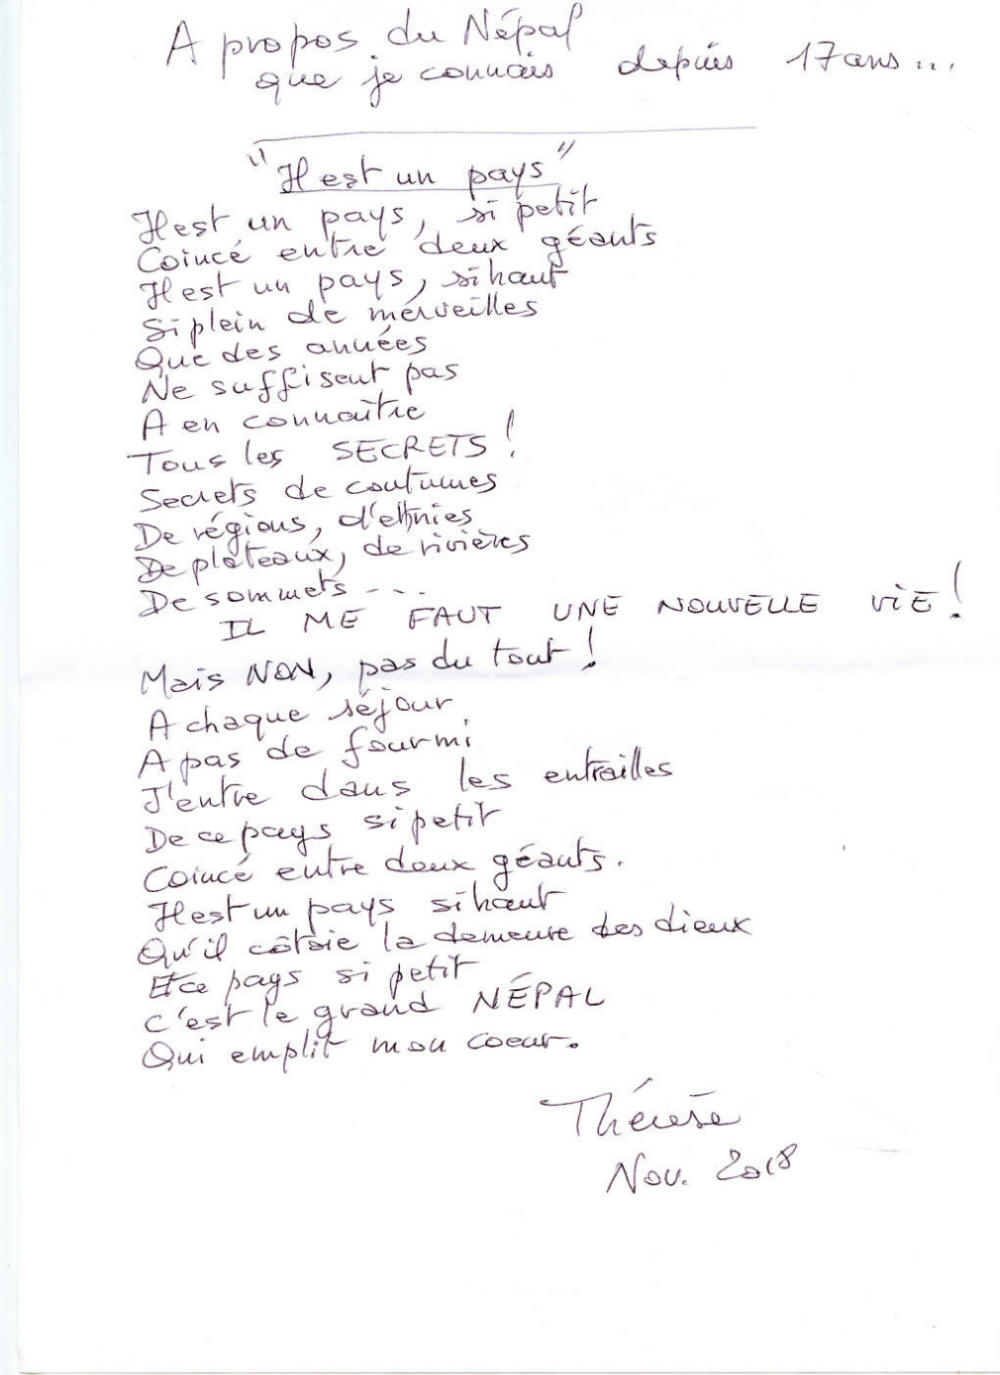 A propos du Népal
que je connais depuis 17 ans...
"Il est un pays"
Il est un pays, si petit
Coincé entre deux géants
Il est un pays, si haut
Si plein de merveilles
Que des années
Ne suffisent pas
A en connaître
Tous les SECRETS !
Secrets de coutumes
De régions, d'ethnies
De plateaux, de rivières
De sommets ....
IL ME FAUT UNE NOUVELLE VIE !
Mais NON, pas du tout !
A chaque séjour
A pas de fourmi
J'entre dans les entrailles
De ce pays si petit
Coincé entre deux géants.
Il est un pays si haut
Qu'il côtoie la demeure des dieux
Et ce pays si petit
C'est le grand NÉPAL
Qui emplit mon coeur.
Thérèse
Nov. 2018